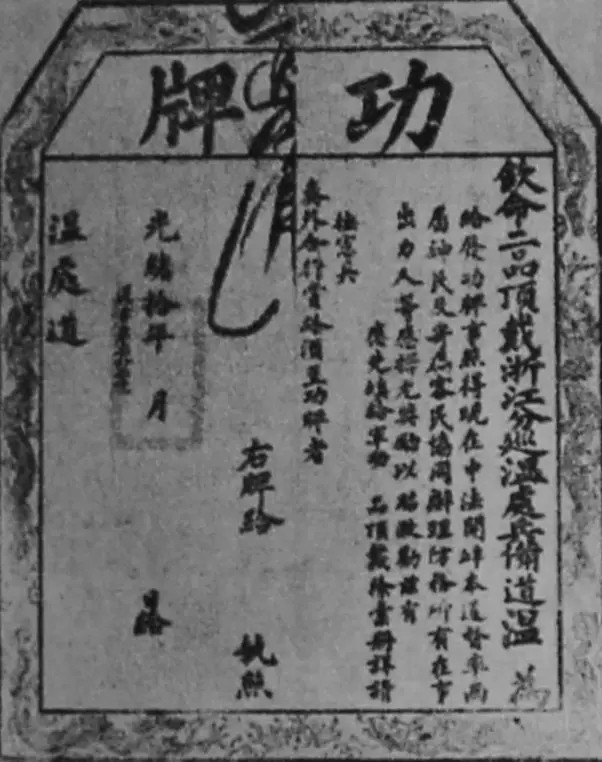 功牌
欽命二品頂戴浙江分巡溫處兵備道溫 為
給發功牌事照得現在中法開衅本道督率兩
屬紳民及寄居客民協同辦理防務所有在事
出力人等應擇尤獎勵以昭激勸茲有
應先填給軍功 品頂戴除彙冊詳請
撫憲
奏外合行賞給須至功牌者
右牌給 執照
光緒拾年 月 日給
溫處道